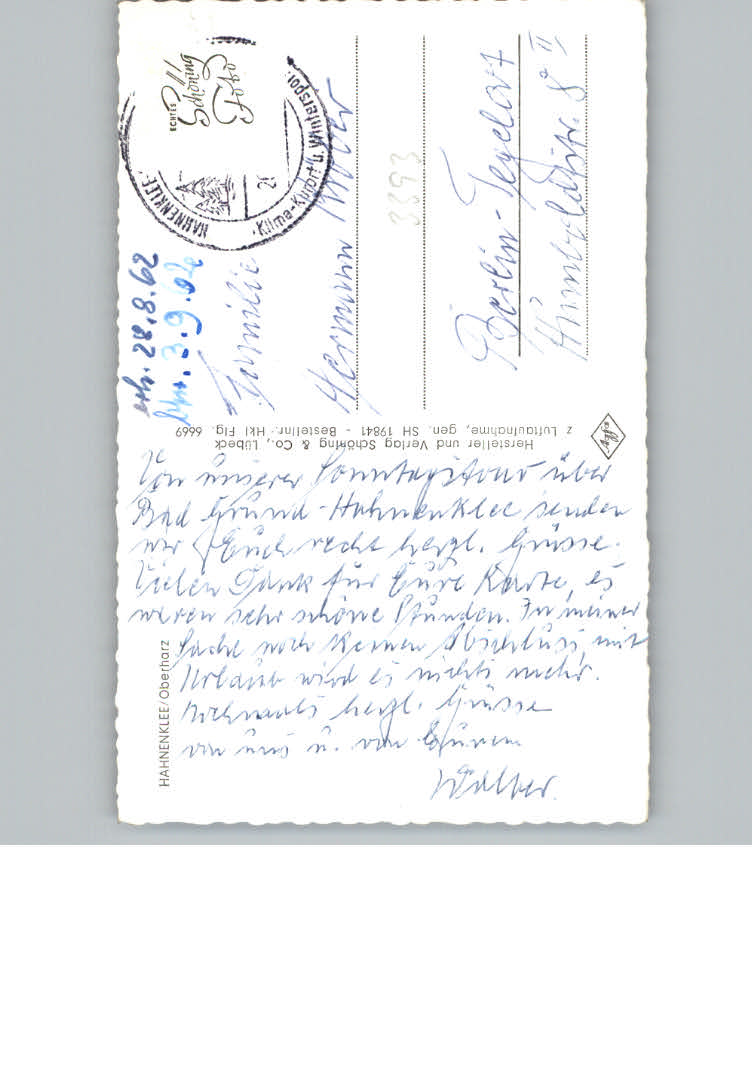 HAHNENKLEE
Klima-Kurort u. Wintersport
ECHTES
Schöning
Foto
erh. 28.8.62
3.9.62
Familie
Hermann
3693
Berlin-Tegelort
8 II
Hersteller und Verlag Schöning & Co., Lübeck
z Luftaufnahme, gen. SH 19841 - Bestellnr. Hkl Flg. 6669
Agfa
HAHNENKLEE/Oberharz
Von unserer Sonntagstour über
Bad Grund-Hahnenklee senden
wir Euch recht herzl. Grüsse.
Vielen Dank für Eure Karte, es
waren sehr schöne Stunden. In meiner
Sache noch keinen Abschluss, mit
Urlaub wird es nichts mehr.
Nochmals herzl. Grüsse
von uns u. von Eurem